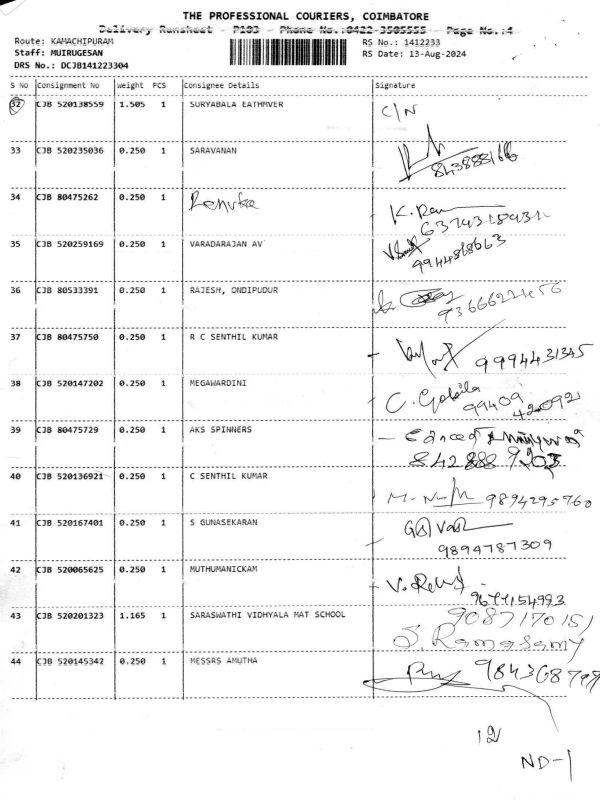 THE PROFESSIONAL COURIERS, COIMBATORE
Delivery Runsheet - P103 - Phone No.:0422-3505555 - Page No.:4
Route: KAMACHIPURAM RS No.: 1412233
Staff: MUIRUGESAN RS Date: 13-Aug-2024
DRS No.: DCJB141223304
S No Consignment No Weight PCS Consignee Details Signature
32 CJB 520138559 1.505 1 SURYABALA EATHMVER C/N
33 CJB 520235036 0.250 1 SARAVANAN
34 CJB 80475262 0.250 1 Renuka K.
35 CJB 520259169 0.250 1 VARADARAJAN AV
36 CJB 80533391 0.250 1 RAJESH, ONDIPUDUR
37 CJB 80475750 0.250 1 R C SENTHIL KUMAR 9994431345
38 CJB 520147202 0.250 1 MEGAWARDINI C. Gokila
99409
42092
39 CJB 80475729 0.250 1 AKS SPINNERS
40 CJB 520136921 0.250 1 C SENTHIL KUMAR 9894295760
41 CJB 520167401 0.250 1 S GUNASEKARAN
9894787309
42 CJB 520065625 0.250 1 MUTHUMANICKAM
43 CJB 520201323 1.165 1 SARASWATHI VIDHYALA MAT SCHOOL 9087170151
S. Ramasamy
44 CJB 520145342 0.250 1 MESSRS AMUTHA
12
ND-1